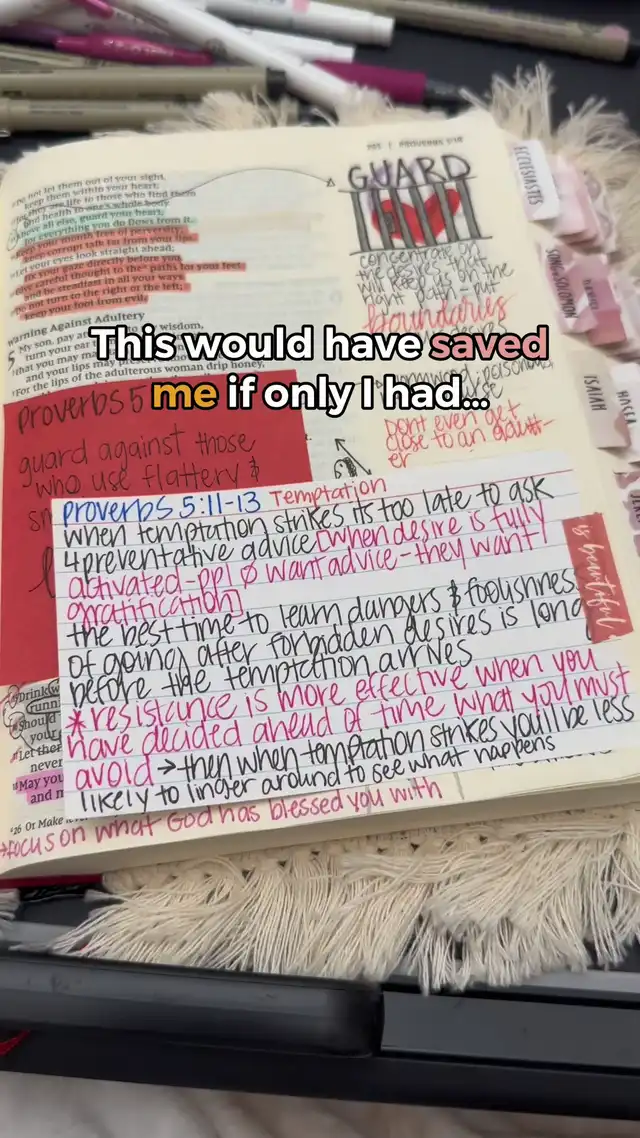 PROVERBS
not let them out of your sight,
keep them within your heart;
for they are life to those who find them
and health to one's whole body.
Above all else, guard your heart,
for everything you do flows from it.
Keep your mouth free of perversity;
keep corrupt talk far from your lips.
Let your eyes look straight ahead;
fix your gaze directly before you.
Give careful thought to the paths for your feet
and be steadfast in all your ways.
Do not turn to the right or the left;
keep your foot from evil.
Warning Against Adultery
5 My son, pay attention to my wisdom,
turn your ear
that you may
and your lips may
For the lips of the adulterous woman drip honey,
GUARD
concentrate on
the desires that
will keep us on the
right path - put
boundaries
poisonous
Dont even get
close to an adult-
er
ECCLESIASTES
SONG of SOLOMON
ISAIAH
HOSEA
This would have saved
me if only I had...
Proverbs 5
guard against those
who use flattery &
Proverbs 5:11-13 Temptation
when temptation strikes its too late to ask
4 preventative advice [when desire is fully
activated - ppl Ø want advice - they want
gratification]
the best time to learn dangers & foolishness
of going after forbidden desires is long
before the temptation arrives
*resistance is more effective when you
have decided ahead of time what you must
avoid → then when temptation strikes youll be less
likely to linger around to see what happens
is beautiful
Drink w
runn
Should
your
Let the
never
May you
and
26 Or Make
→focus on what God has blessed you with